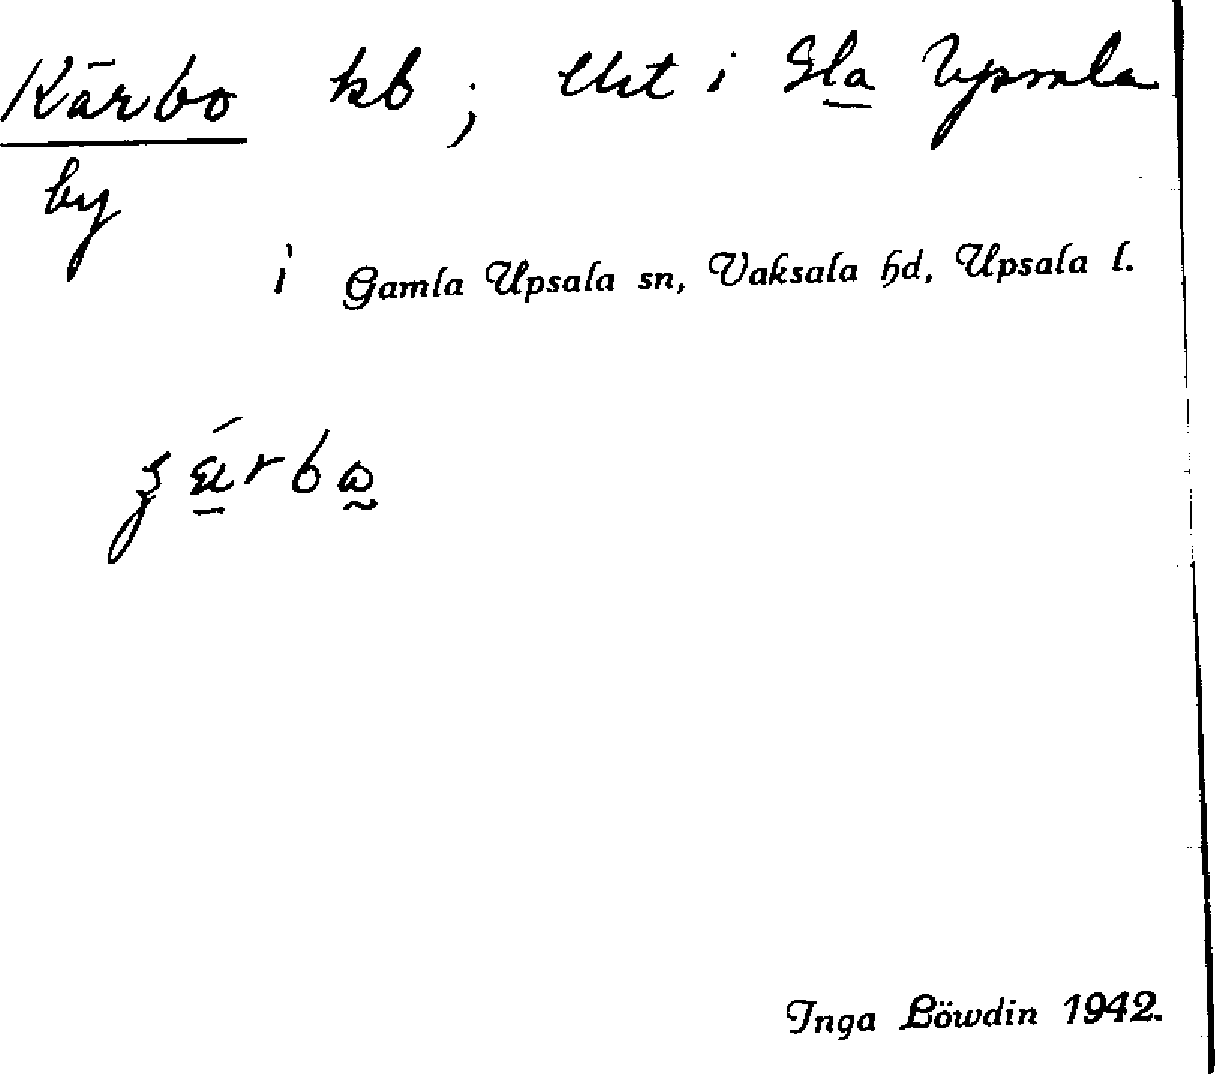 Kärbo kb; Ust i Gla Upsala
by
i Gamla Upsala sn, Vaksala hd, Upsala l.
Inga Löwdin 1942.